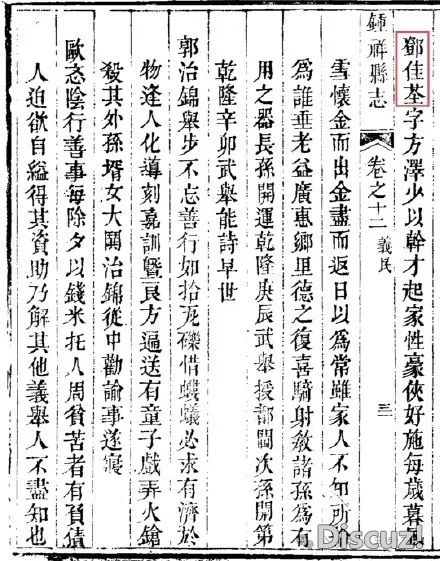 鄧佳荃字方澤少以幹才起家性豪俠好施每歲暮風
鍾祥縣志 卷之十二 義民 三
雪懷金而出金盡而返日以為常雖家人不知所
為誰垂老益廣惠鄉里德之復喜騎射教諸孫為有
用之器長孫開運乾隆庚辰武舉授都閫次孫開第
乾隆辛卯武舉能詩早世
郭治錦舉步不忘善行如拾瓦礫惜螻蟻必求有濟於
物逢人化導刻嘉訓暨良方遍送有童子戲弄火鎗
殺其外孫壻女大鬧治錦從中勸諭事遂寢
歐忞陰行善事每除夕以錢米托人周貧苦者有負債
人迫欲自縊得其資助乃解其他義舉人不盡知也
Discuz